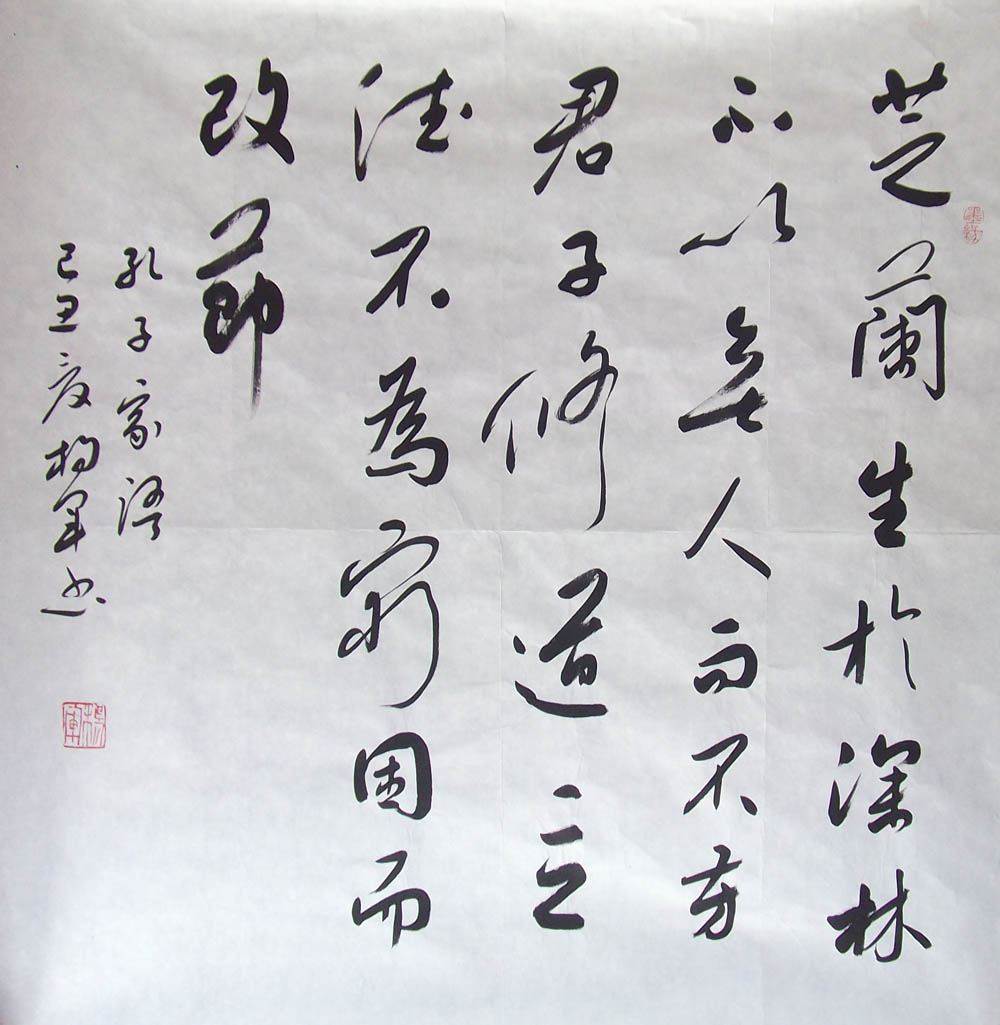 芝蘭生於深林
不以無人而不芳
君子修道立
德不為窮困而
改節
孔子家語
己丑夏楊軍書
楊軍